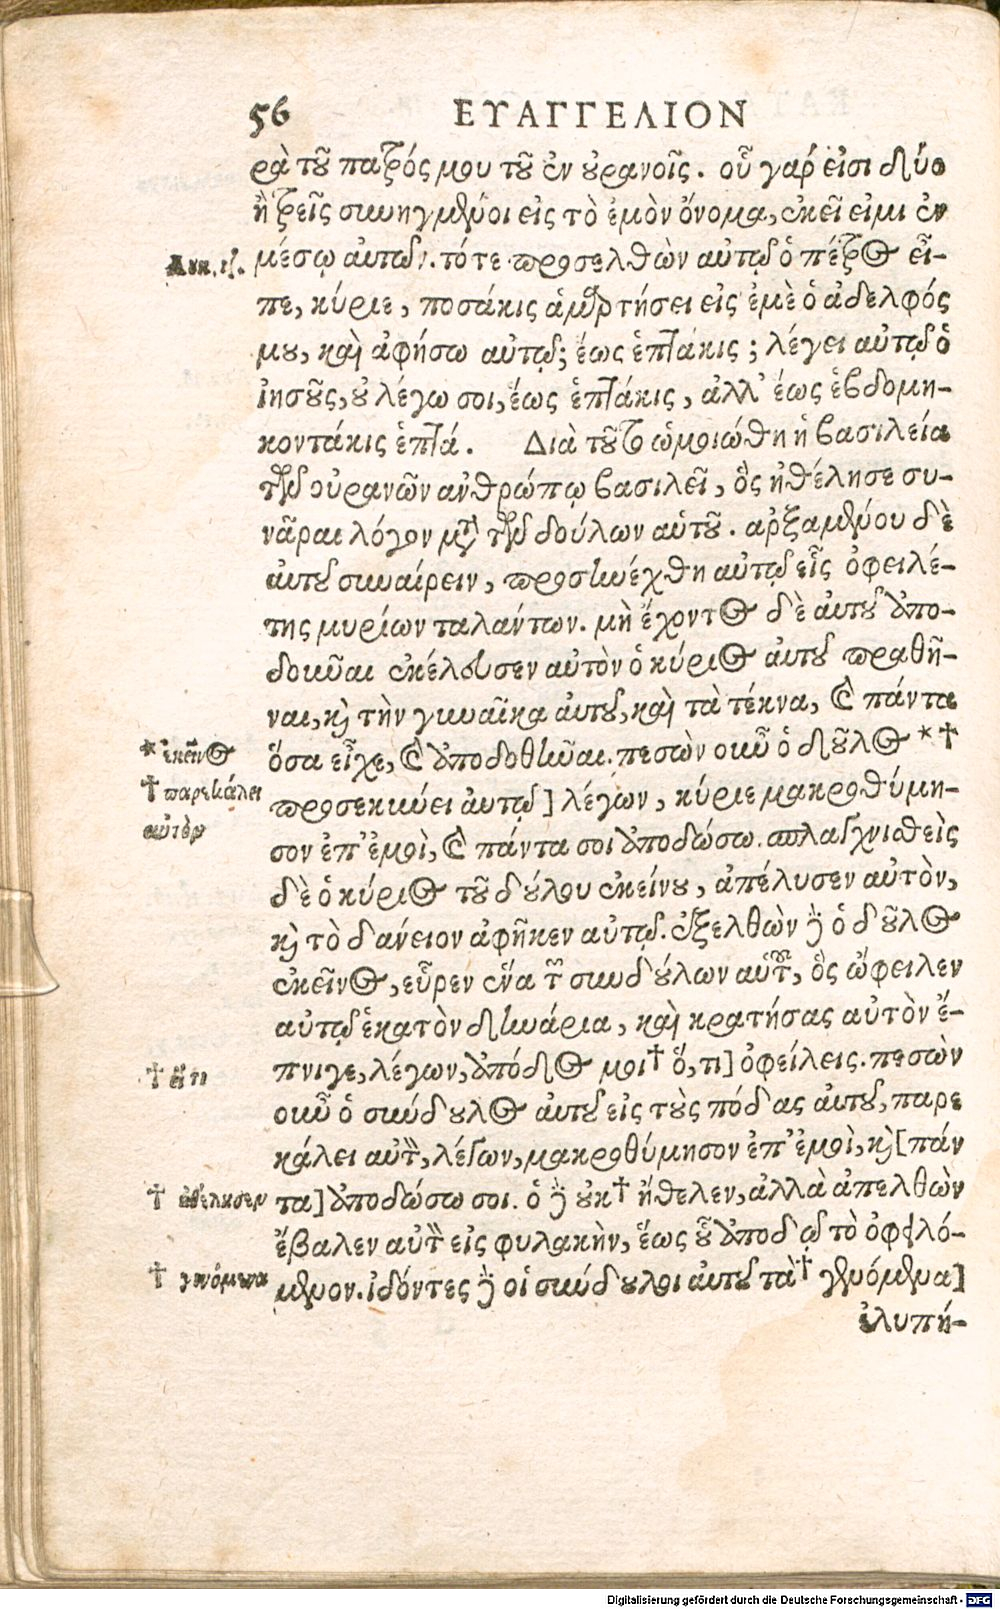 56 ΕΥΑΓΓΕΛΙΟΝ
ρὰ τοῦ πατρός μου τοῦ ἐν οὐρανοῖς. οὗ γάρ εἰσι δύο
ἢ τρεῖς συνηγμένοι εἰς τὸ ἐμὸν ὄνομα, ἐκεῖ εἰμι ἐν
Λουκ. ιζ. μέσῳ αὐτῶν. τότε προσελθὼν αὐτῷ ὁ πέτρος εἶ-
πε, κύριε, ποσάκις ἁμαρτήσει εἰς ἐμὲ ὁ ἀδελφός
μου, καὶ ἀφήσω αὐτῷ; ἕως ἑπτάκις; λέγει αὐτῷ ὁ
ἰησοῦς, οὐ λέγω σοι, ἕως ἑπτάκις, ἀλλ' ἕως ἑβδομη-
κοντάκις ἑπτά. Διὰ τοῦτο ὡμοιώθη ἡ βασιλεία
τῶν οὐρανῶν ἀνθρώπῳ βασιλεῖ, ὃς ἠθέλησε συ-
νᾶραι λόγον μετὰ τῶν δούλων αὑτοῦ. ἀρξαμένου δὲ
αὐτοῦ συναίρειν, προσηνέχθη αὐτῷ εἷς ὀφειλέ-
της μυρίων ταλάντων. μὴ ἔχοντος δὲ αὐτοῦ ἀπο-
δοῦναι ἐκέλευσεν αὐτὸν ὁ κύριος αὐτοῦ πραθῆ-
ναι, καὶ τὴν γυναῖκα αὐτοῦ, καὶ τὰ τέκνα, καὶ πάντα
* ἐκεῖνος ὅσα εἶχε, καὶ ἀποδοθῆναι. πεσὼν οὖν ὁ δοῦλος * †
† παρεκάλει προσεκύνει αὐτῷ] λέγων, κύριε μακροθύμη-
αὐτὸν σον ἐπ' ἐμοὶ, καὶ πάντα σοι ἀποδώσω. σπλαγχνισθεὶς
δὲ ὁ κύριος τοῦ δούλου ἐκείνου, ἀπέλυσεν αὐτὸν,
καὶ τὸ δάνειον ἀφῆκεν αὐτῷ. ἐξελθὼν δὲ ὁ δοῦλος
ἐκεῖνος, εὗρεν ἕνα τῶν συνδούλων αὑτοῦ, ὃς ὤφειλεν
αὐτῷ ἑκατὸν δηνάρια, καὶ κρατήσας αὐτὸν ἔ-
† εἴ τι πνιγε, λέγων, ἀπόδος μοι † ὅ, τι] ὀφείλεις. πεσὼν
οὖν ὁ σύνδουλος αὐτοῦ εἰς τοὺς πόδας αὐτοῦ, παρε
κάλει αὐτὸν, λέγων, μακροθύμησον ἐπ' ἐμοὶ, καὶ [πάν
† ἠθέλησεν τα] ἀποδώσω σοι. ὁ δὲ οὐκ † ἤθελεν, ἀλλὰ ἀπελθὼν
ἔβαλεν αὐτὸν εἰς φυλακὴν, ἕως οὗ ἀποδῷ τὸ ὀφειλό-
† γινόμενα μενον. ἰδόντες δὲ οἱ σύνδουλοι αὐτοῦ τὰ † γενόμενα]
ἐλυπή-
Digitalisierung gefördert durch die Deutsche Forschungsgemeinschaft - DFG